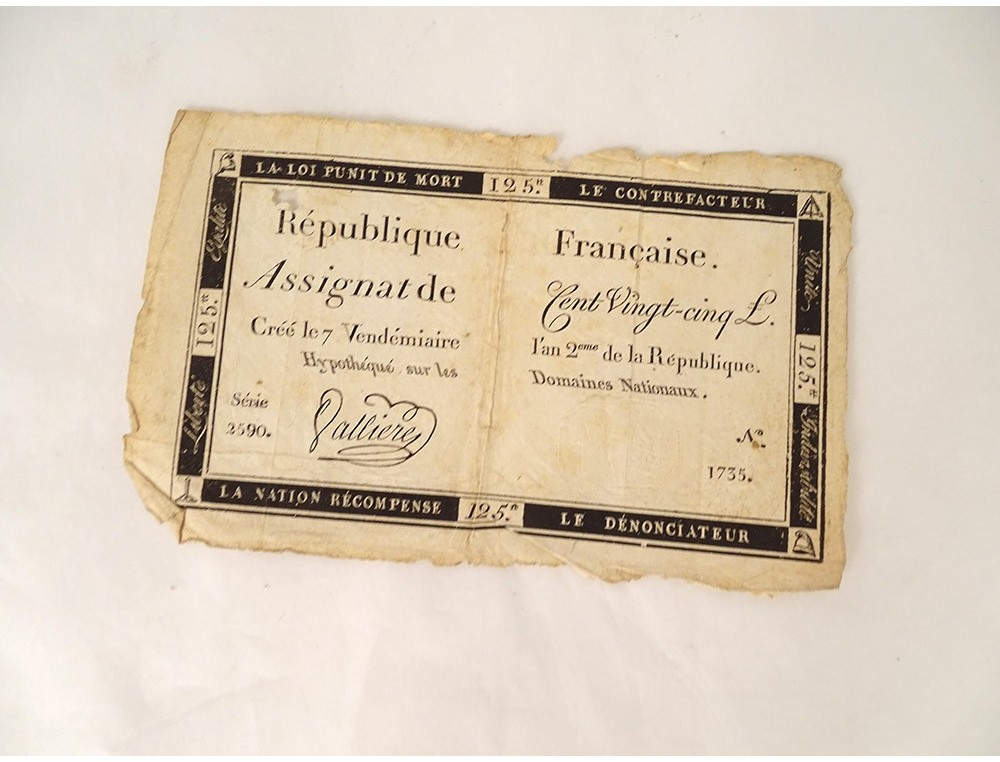 LA LOI PUNIT DE MORT 125.tt LE CONTREFACTEUR
Egalité
Liberté
125.tt
Unité
125.tt
Indivisibilité
République Française.
Assignat de Cent Vingt-cinq £.
Créé le 7 Vendémiaire l'an 2eme de la République.
Hypothéqué sur les Domaines Nationaux.
Série
2590.
Vallieres
No.
1735.
LA NATION RÉCOMPENSE 125.tt LE DÉNONCIATEUR